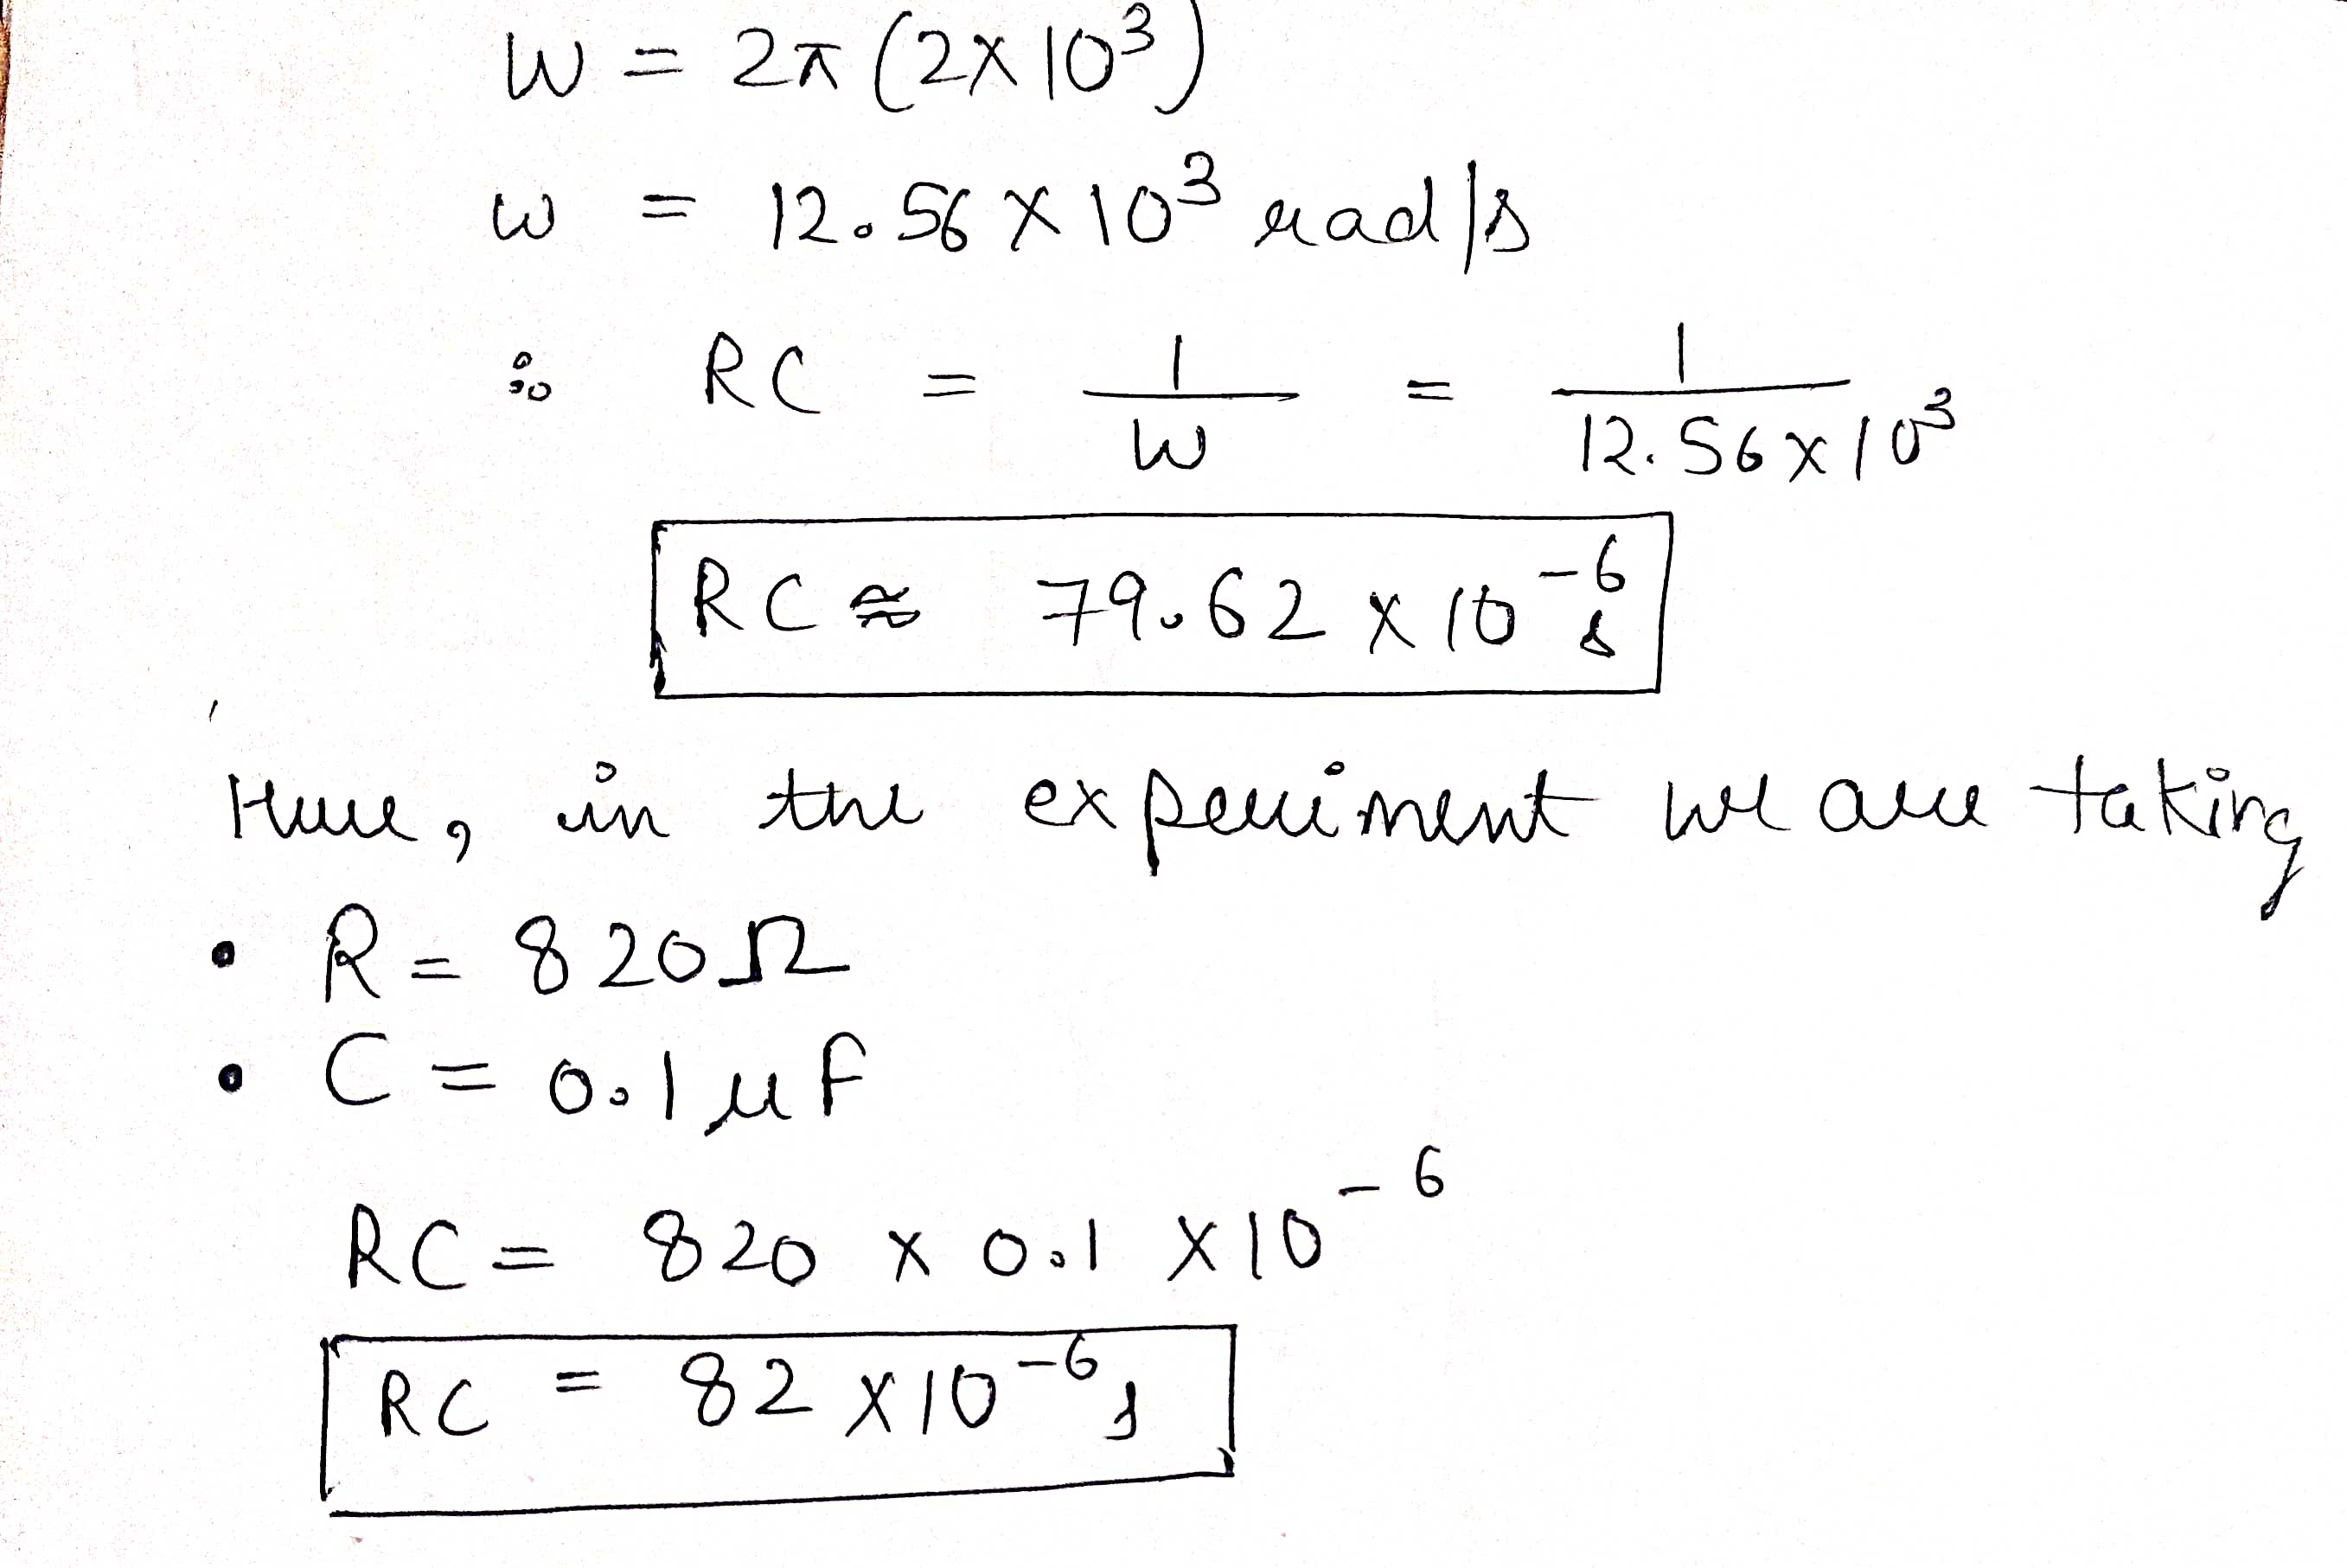 W = 2π (2x10³)
ω = 12.56 X 10³ rad/s
∴ RC = 1/W = 1/12.56x10³
RC ≈ 79.62 x 10⁻⁶ s
Here, in the experiment we are taking
• R = 820Ω
• C = 0.1 μf
RC = 820 x 0.1 x10⁻⁶
RC = 82 x10⁻⁶ s